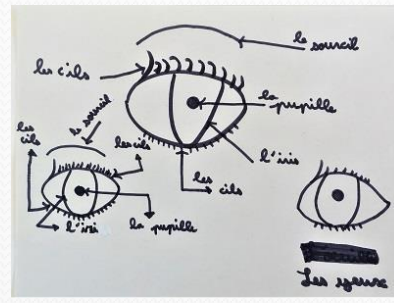 le sourcil
les cils
la pupille
l'iris
les
cils
le sourcil
les
cils
les cils
l'iri
la pupille
Les yeux